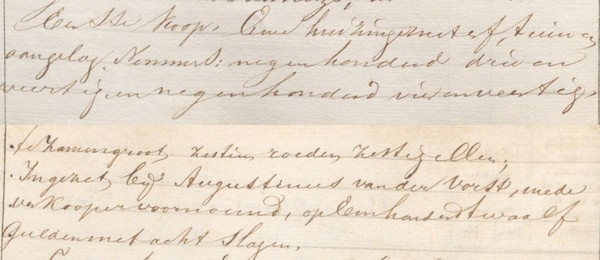 Eerste Koop. Eene huizinge met erf, tuin en
aangelag. Nommers: negenhonderd drie en
veertig, en negenhonderd vierenveertig,
te zamen groot zestien roeden zestig ellen;
Ingezet bij Augustinus van der Vorst, mede
verkooper voornoemd, op Een honderd twaalf
Gulden met acht slagen.